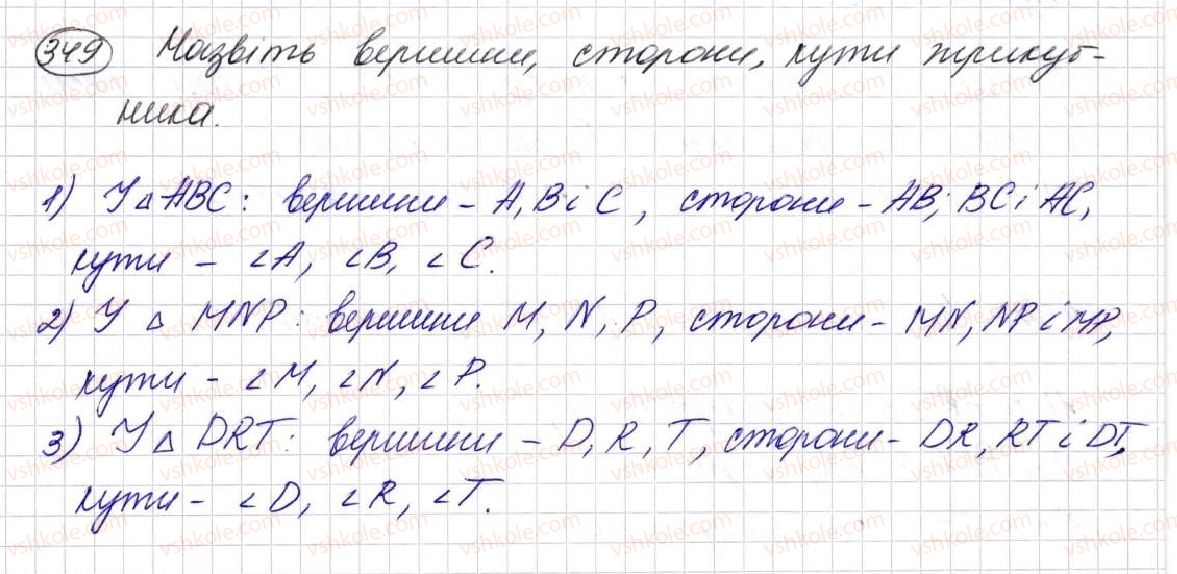 349 Назвіть вершини, сторони, кути трикут-
ника.
1) У △ ABC: вершини - A, B і C, сторони - AB; BC і AC,
кути - ∠A, ∠B, ∠C.
2) У △ MNP: вершини M, N, P, сторони - MN, NP і MP,
кути - ∠M, ∠N, ∠P.
3) У △ DRT: вершини - D, R, T, сторони - DR, RT і DT,
кути - ∠D, ∠R, ∠T.